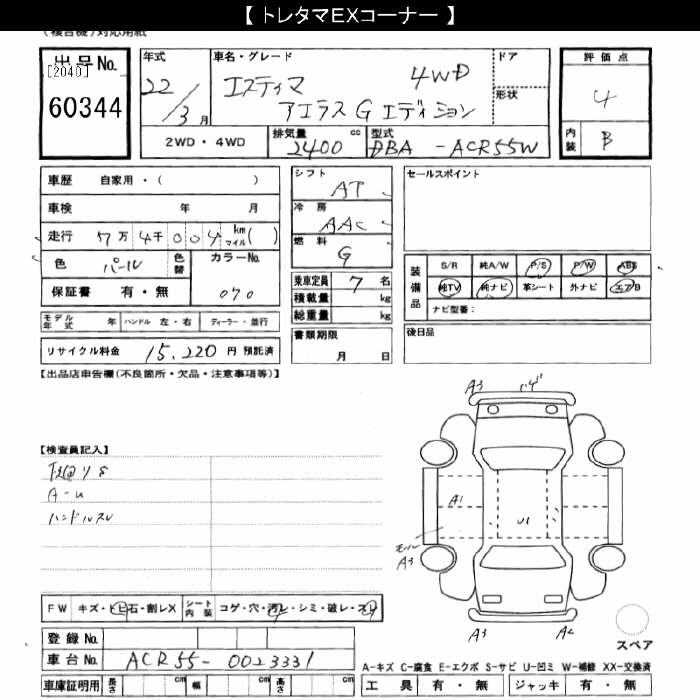 【 トレタマEXコーナー 】
(複合機)対応用紙
出品No.
[2040]
60344
年式
22/3月
車名・グレード
エスティマ 4WD
アエラス G エディション
ドア
形状
評価点
4
内装 B
2WD・4WD
排気量 2400 cc
型式 DBA -ACR55W
車歴 自家用・( )
車検 年 月
走行 7万4千004 km マイル( )
色 パール 色替
カラーNo. 070
保証書 有・無
モデル年式 年 ハンドル 左・右 ディーラー・並行
リサイクル料金 15,220 円 預託済
シフト AT
冷房 AAC
燃料 G
乗車定員 7 名
積載量 kg
総重量 kg
書類期限
月 日
セールスポイント
装備品
S/R 純A/W P/S P/W ABS
純TV 純ナビ 革シート 外ナビ エアB
ナビ型番：
後日品
【出品店申告欄(不良箇所・欠品・注意事項等)】
【検査員記入】
A-U
ハンドルスレ
A3
A1
U1
モール
A3
A3
A2
スペア
FW キズ・トビ石・割レX シート内装 コゲ・穴・汚レ・シミ・破レ・スレ
登録 No.
車台 No. ACR55-0023331
車庫証明用 長さ cm 幅 cm 高さ cm
A-キズ C-腐食 E-エクボ S-サビ U-凹ミ W-補修 XX-交換済
工具 有・無 ジャッキ 有・無